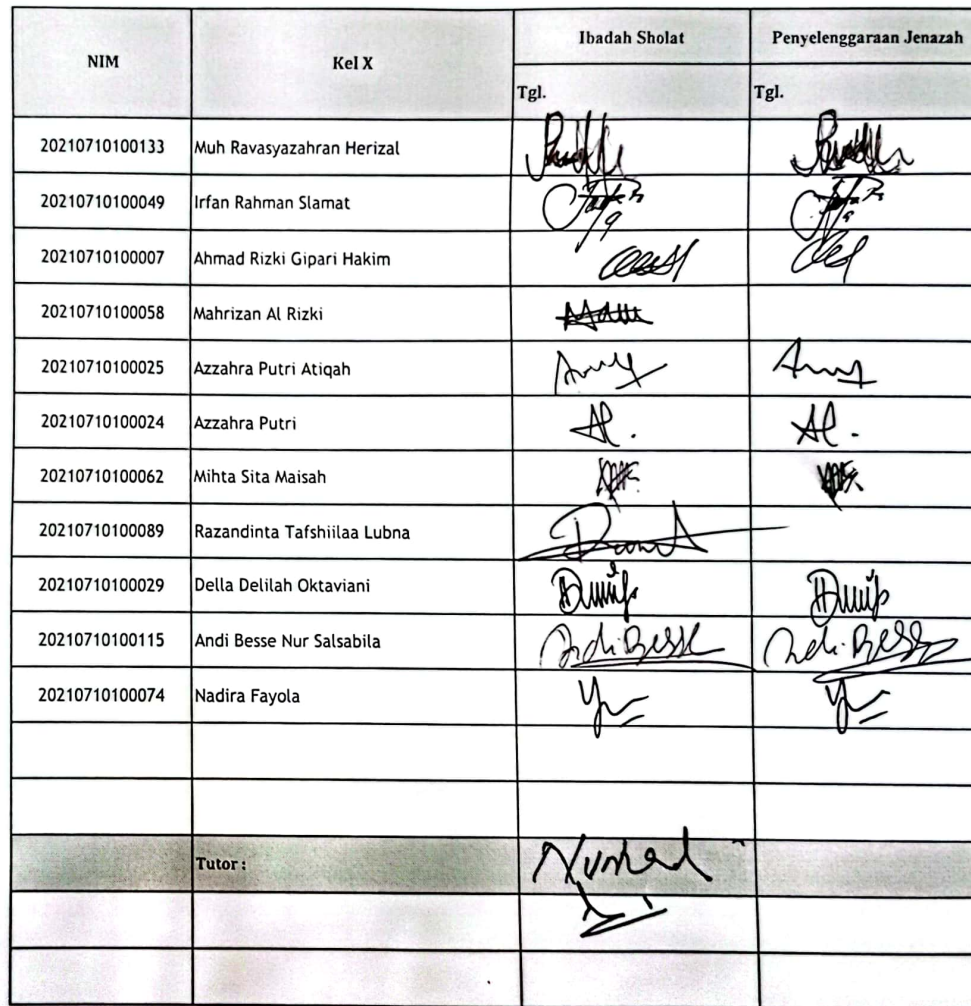 NIM Kel X Ibadah Sholat Penyelenggaraan Jenazah
Tgl. Tgl.
20210710100133 Muh Ravasyazahran Herizal
20210710100049 Irfan Rahman Slamat
20210710100007 Ahmad Rizki Gipari Hakim
20210710100058 Mahrizan Al Rizki
20210710100025 Azzahra Putri Atiqah
20210710100024 Azzahra Putri
20210710100062 Mihta Sita Maisah
20210710100089 Razandinta Tafshiilaa Lubna
20210710100029 Della Delilah Oktaviani
20210710100115 Andi Besse Nur Salsabila Andi Besse Andi Besse
20210710100074 Nadira Fayola
Tutor :